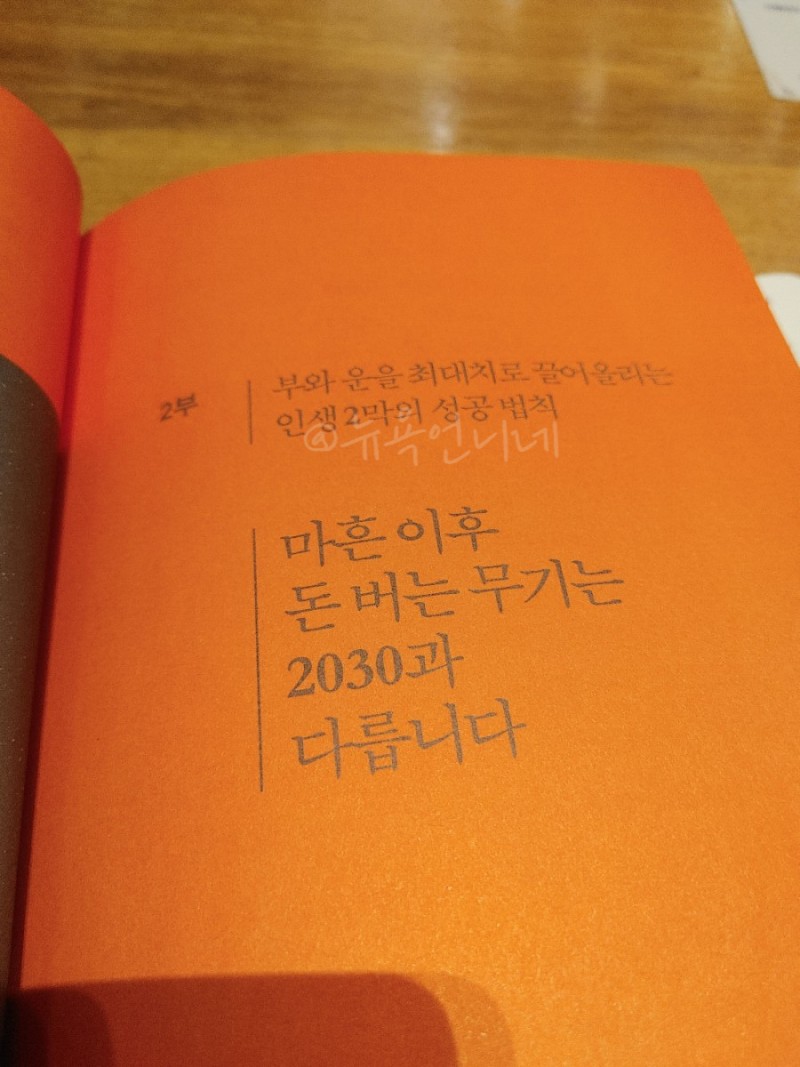 2부
부와 운을 최대치로 끌어올리는
인생 2막의 성공 법칙
@뉴욕언니네
마흔 이후
돈 버는 무기는
2030과
다릅니다